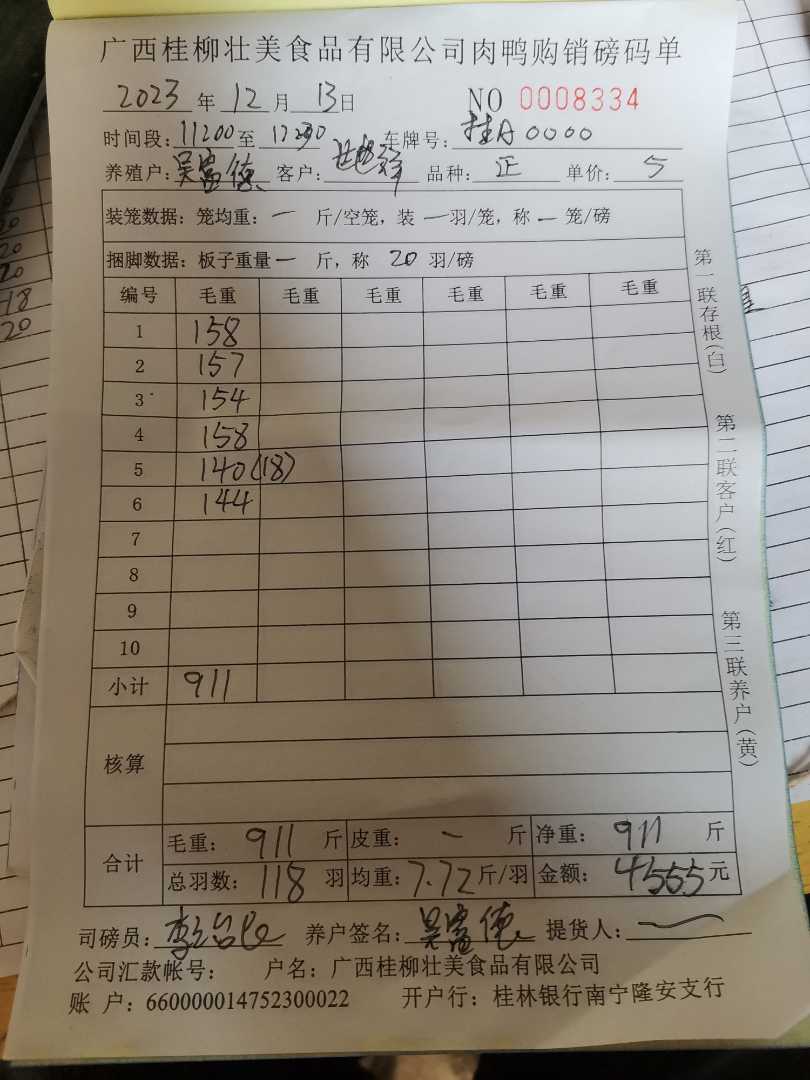 广西桂柳壮美食品有限公司肉鸭购销磅码单
2023 年 12 月 13 日 NO 0008334
时间段: 11200 至 1230 车牌号: 桂A 0000
养殖户: 吴富德 客户: 品种: 正 单价: 5
装笼数据: 笼均重: 一 斤/空笼, 装 一 羽/笼, 称 一 笼/磅
捆脚数据: 板子重量 一 斤, 称 20 羽/磅
编号 毛重 毛重 毛重 毛重 毛重 毛重
1 158
2 157
3 154
4 158
5 140(18)
6 144
7
8
9
10
小计 911
核算
合计 毛重: 911 斤 皮重: 一 斤 净重: 911 斤
总羽数: 118 羽 均重: 7.72 斤/羽 金额: 4555 元
司磅员: 养户签名: 吴富德 提货人:
公司汇款帐号: 户名: 广西桂柳壮美食品有限公司
账 户: 660000014752300022 开户行: 桂林银行南宁隆安支行
第一联存根(白)
第二联客户(红)
第三联养户(黄)
20
20
20
20
18
20